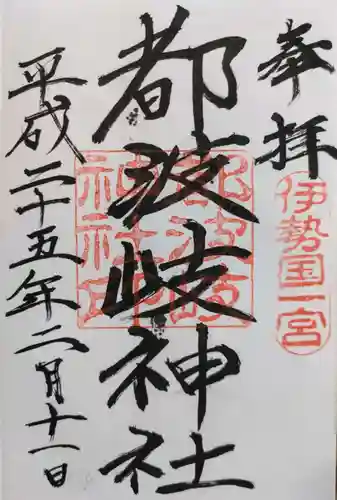 奉拝
伊勢国一宮
都波岐神社
都波岐神社印
平成二十五年二月十一日